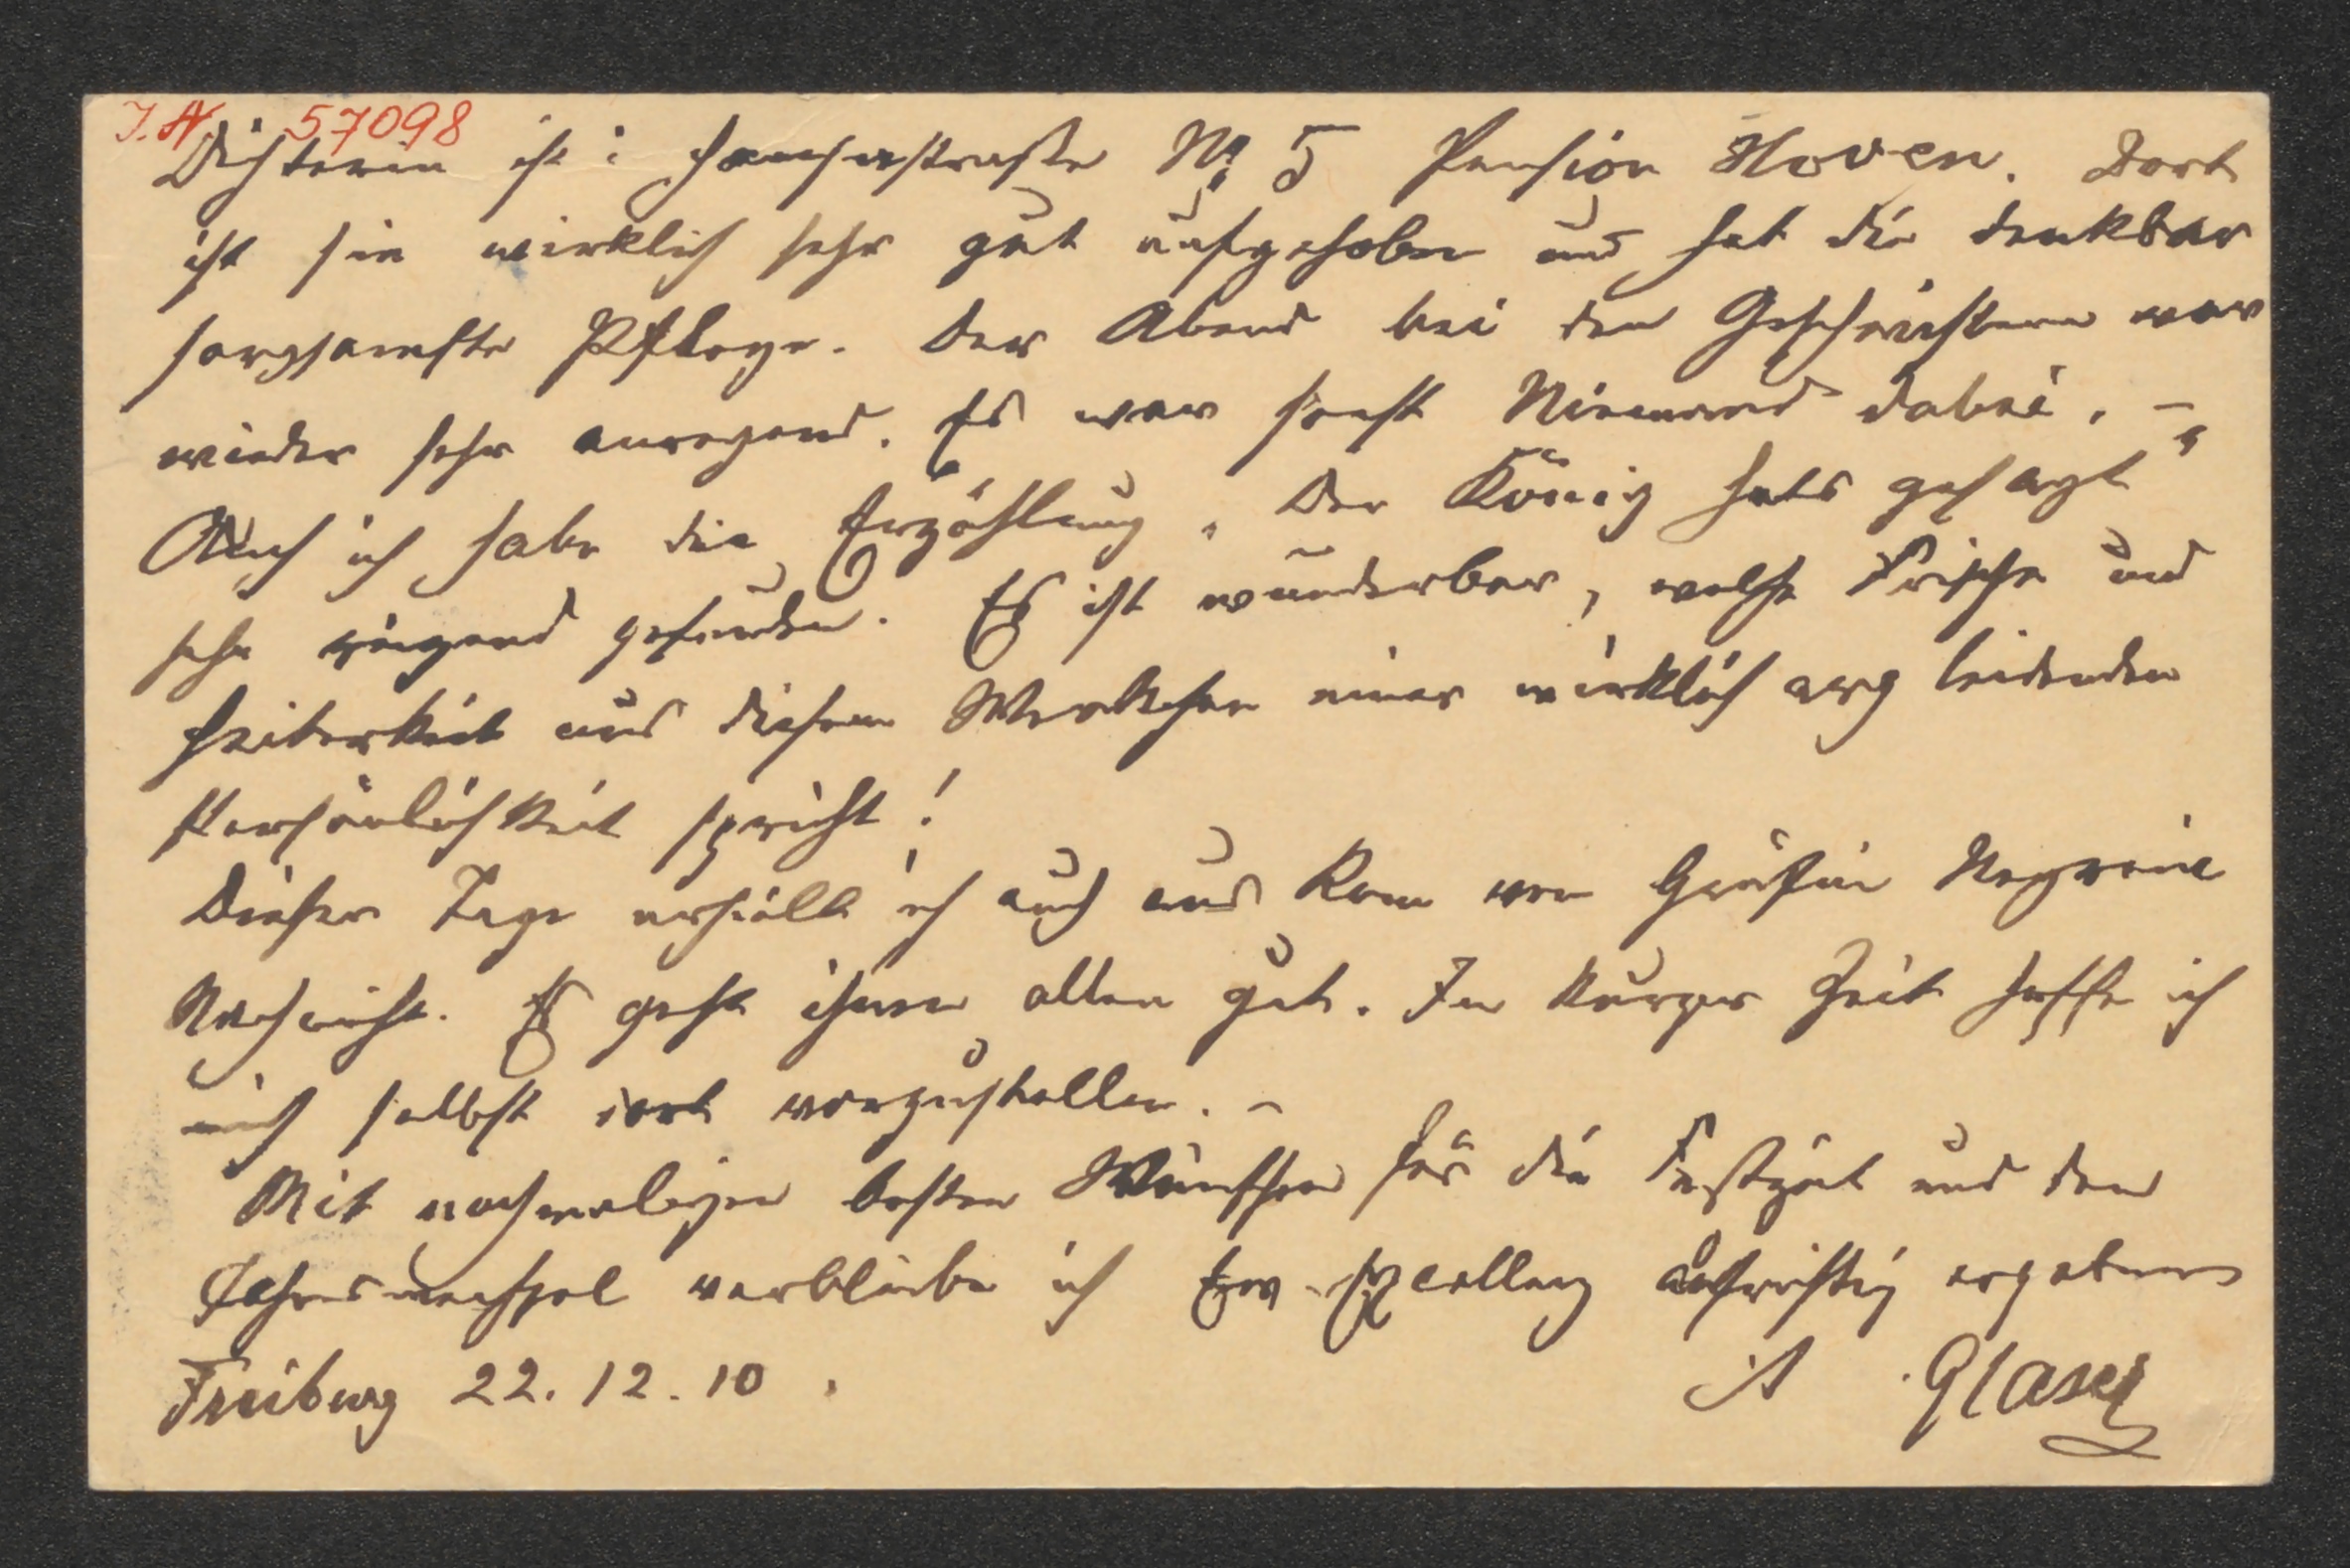 I.N. 57098
Dichterin ist: Hansastraße No 5 Pension Hoven. Dort
ist sie wirklich sehr gut aufgehoben und hat die denkbar
sorgsamste Pflege. Der Abend bei den Geschwistern war
wieder sehr anregend. Es war sonst Niemand dabei. –
Auch ich habe die Erzählung „Der König hats gesagt“
sehr reizend gefunden. Es ist wunderbar, welche Frische und
Heiterkeit aus diesem Werkchen einer wirklich arg leidenden
Persönlichkeit spricht!
Dieser Tage erhielt ich auch aus Rom von Gräfin
Nachricht. Es geht ihnen allen gut. In kurzer Zeit hoffe ich
mich selbst dort vorzustellen. –
Mit nochmaligen besten Wünschen für die Festzeit und den
Jahreswechsel verbleibe ich Ew. Excellenz aufrichtig ergebener
Freiburg 22.12.10. Glaser